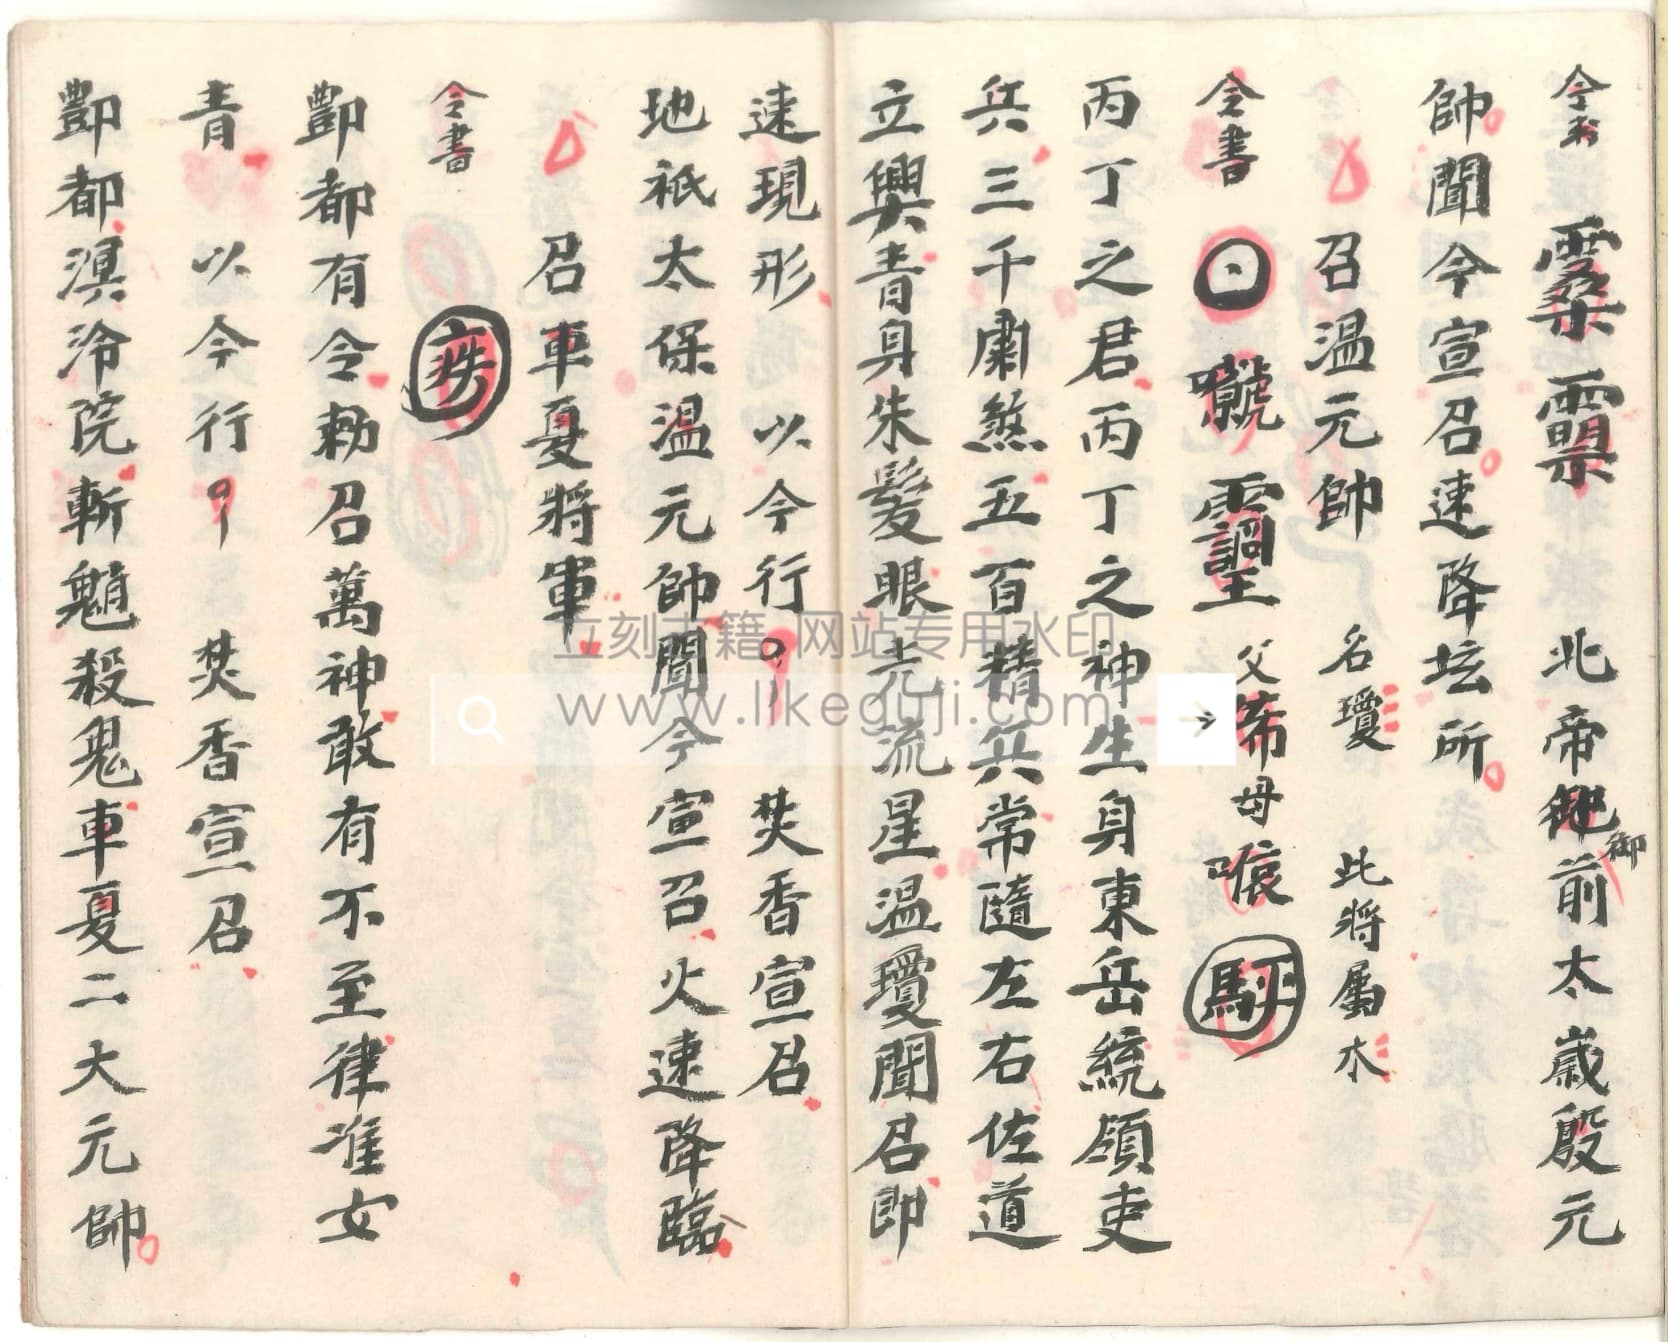 令書 北帝御前太歲殷元
帥聞今宣召速降坛所
召温元帥 名瓊 此將屬木
令書 父 母
丙丁之君丙丁之神生身東岳統領吏
兵三千肅煞五百精兵常隨左右佐道
立興青身朱髮眼光流星温瓊聞召即
速現形 以今行 焚香宣召
地祇太保温元帥聞今宣召火速降臨
召車夏將軍
令書
酆都有令勅召萬神敢有不至律准女
青 以今行 焚香宣召
酆都溟泠院斬魈殺鬼車夏二大元帥
立刻古籍 网站专用水印
www.likeguji.com